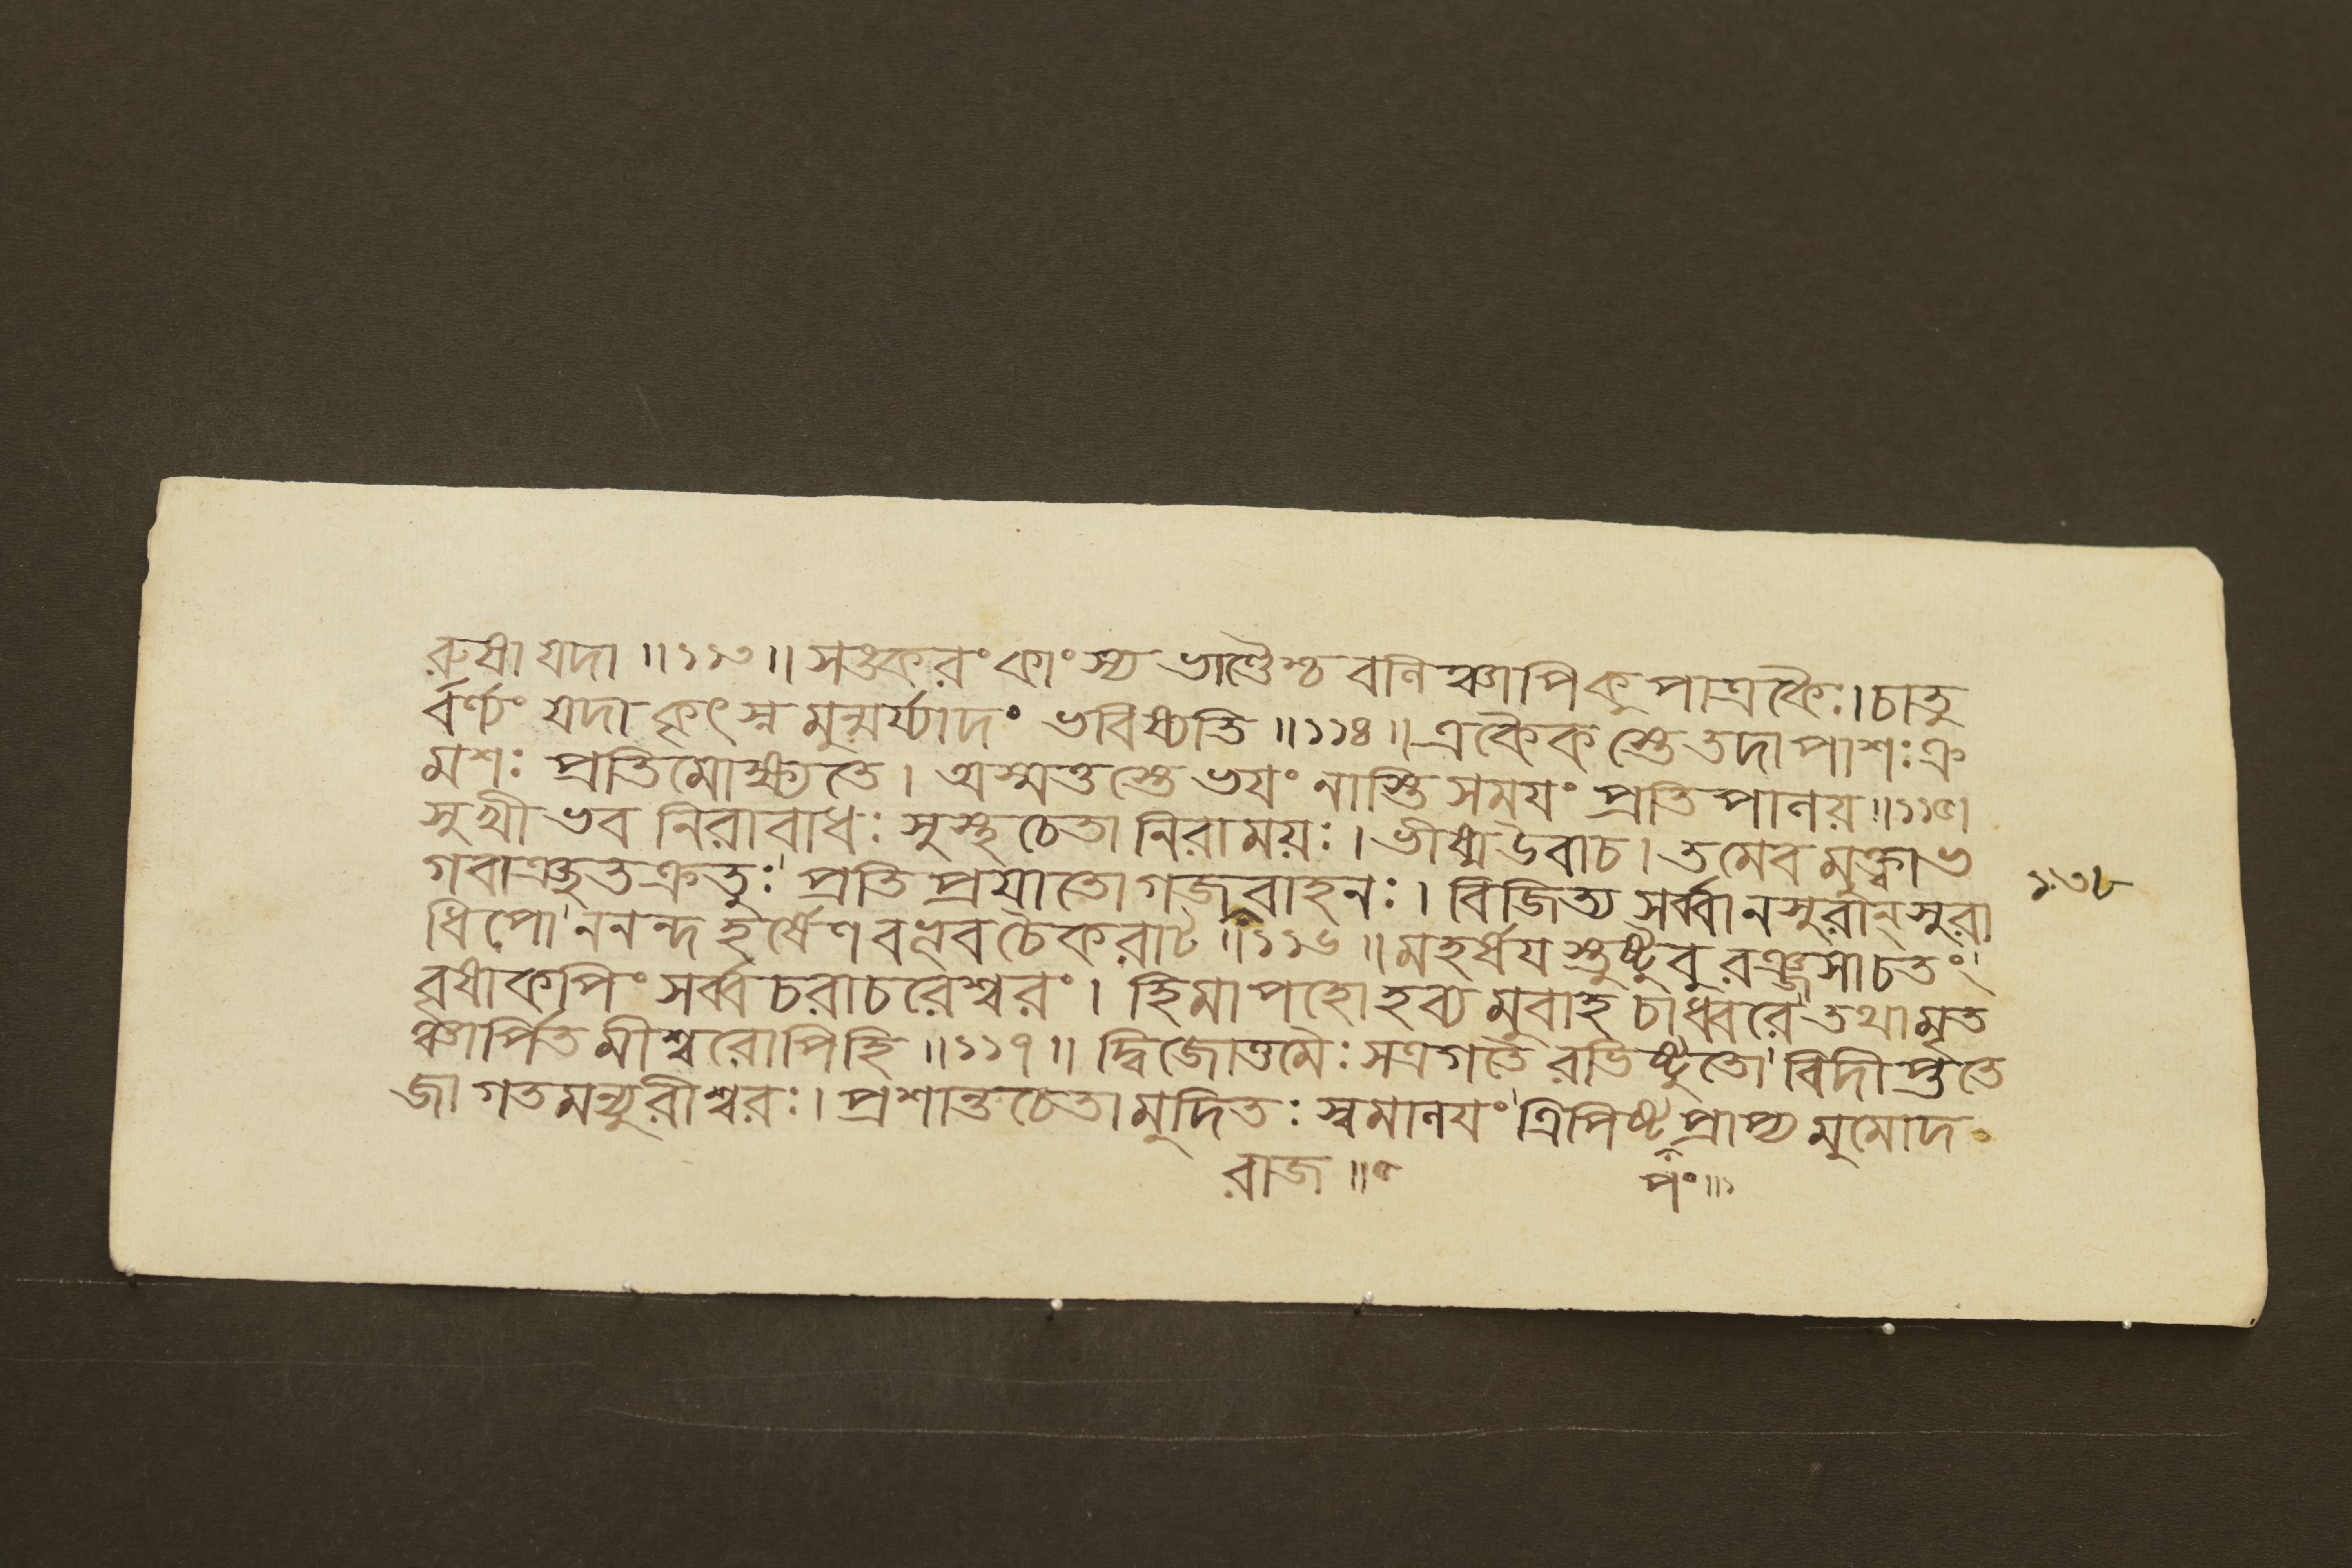 রুষা যদা ॥ ১১৩ ॥ সঙ্করং কাংস্য ভাণ্ডৈশ্চ বলিঞ্চাপি কুপাত্রকৈঃ । চাতু
র্ব্বর্ণ্যং যদা কৃৎস্নমুন্মর্য্যাদং ভবিষ্যতি ॥ ১১৪ ॥ একৈকস্তে তদা পাশঃ ক্র
মশঃ প্রতিমোক্ষ্যতে । অস্মত্তস্তে ভযং নাস্তি সময়ং প্রতিপালয় ॥ ১১৫
সুখী ভব নিরাবাধঃ সুস্থচেতা নিরাময়ঃ । ভীষ্ম উবাচ । তমেবমুক্ত্বা ভ
গবাঞ্ছতক্রতুঃ প্রতিপ্রযাতো গজবাহনঃ । বিজিত্য সর্ব্বানসুরান্ সুরা
ধিপো ননন্দ হর্ষেণ বভূব চৈকরাট্ ॥ ১১৬ ॥ মহর্ষযস্তুষ্টুবুরঞ্জসা চ তং
বৃষাকপিং সর্ব্বচরাচরেশ্বরং । হিমাপহো হব্যমুবাহ চাধ্বরে তথামৃত
ঞ্চার্পিতমীশ্বরোপি হি ॥ ১১৭ ॥ দ্বিজোত্তমৈঃ সত্রগতৈরভিষ্টুতো বিদীপ্ততে
জা গতমন্যুরীশ্বরঃ । প্রশান্তচেতা মুদিতঃ স্বমালযং ত্রিপিষ্ট প্রাপ্য মুমোদ
রাজ ॥
পং ॥ ১
১৩৮